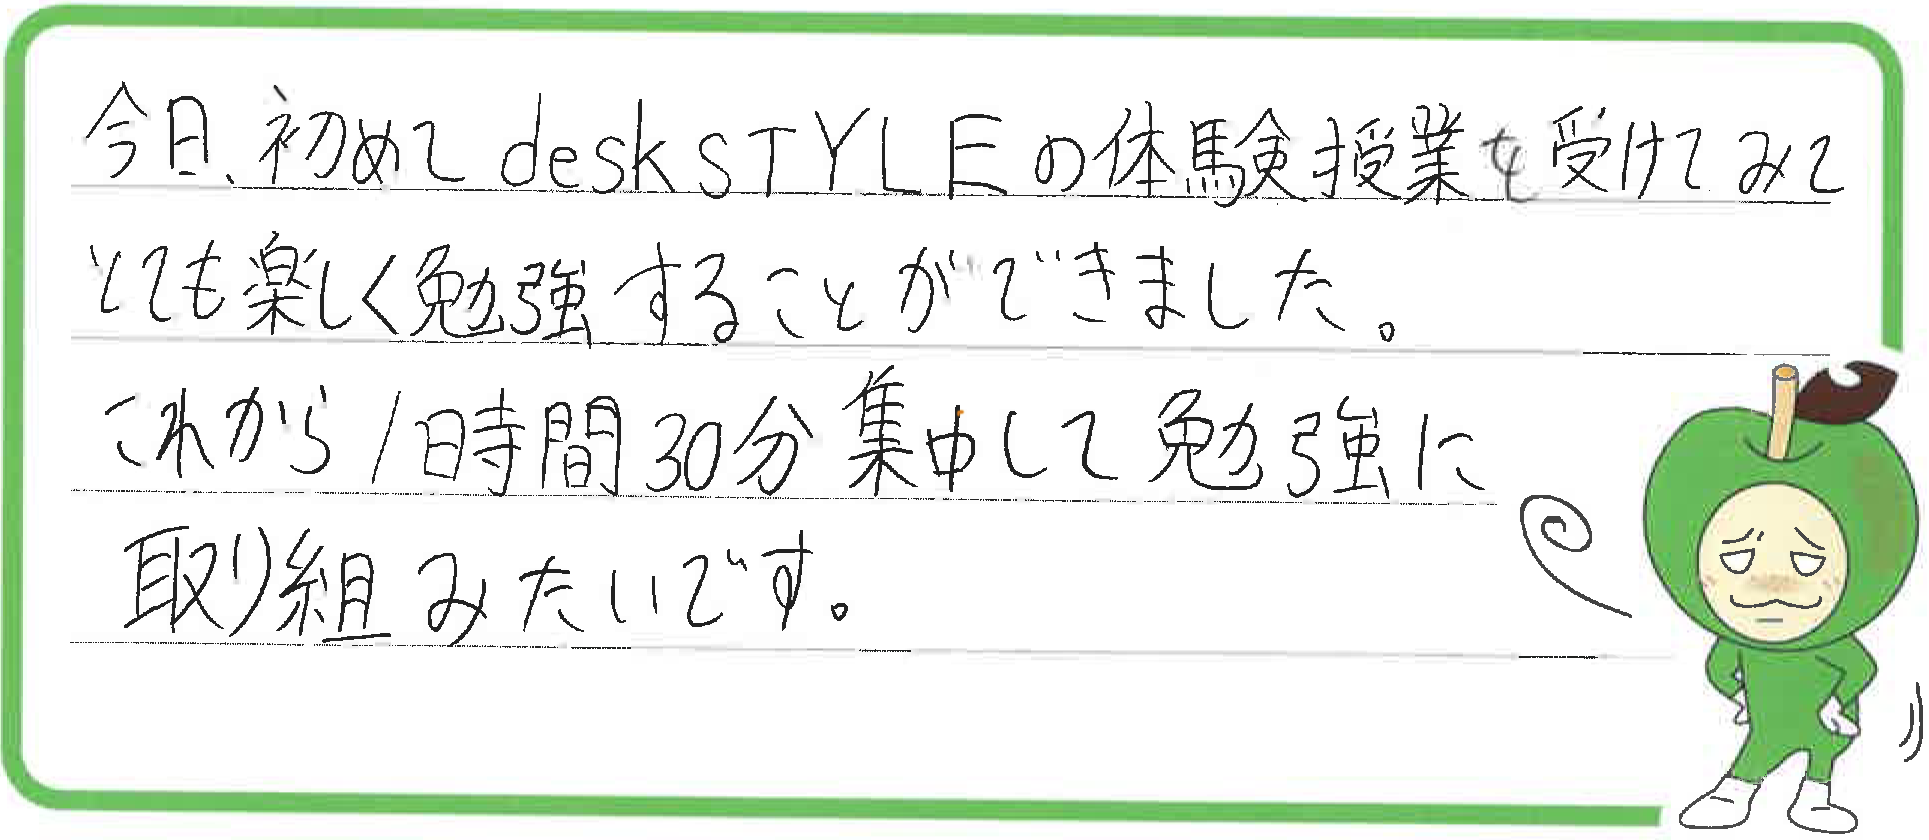 今日、初めてdeskSTYLEの体験授業を受けてみて
とても楽しく勉強することができました。
これから1時間30分集中して勉強に
取り組みたいです。